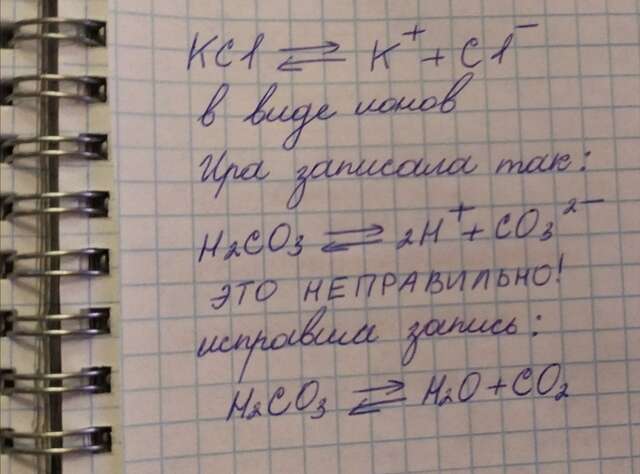 KCl ⇌ K⁺ + Cl⁻
в виде ионов
Ира записала так:
H₂CO₃ ⇌ 2H⁺ + CO₃²⁻
ЭТО НЕПРАВИЛЬНО!
исправила запись:
H₂CO₃ ⇌ H₂O + CO₂